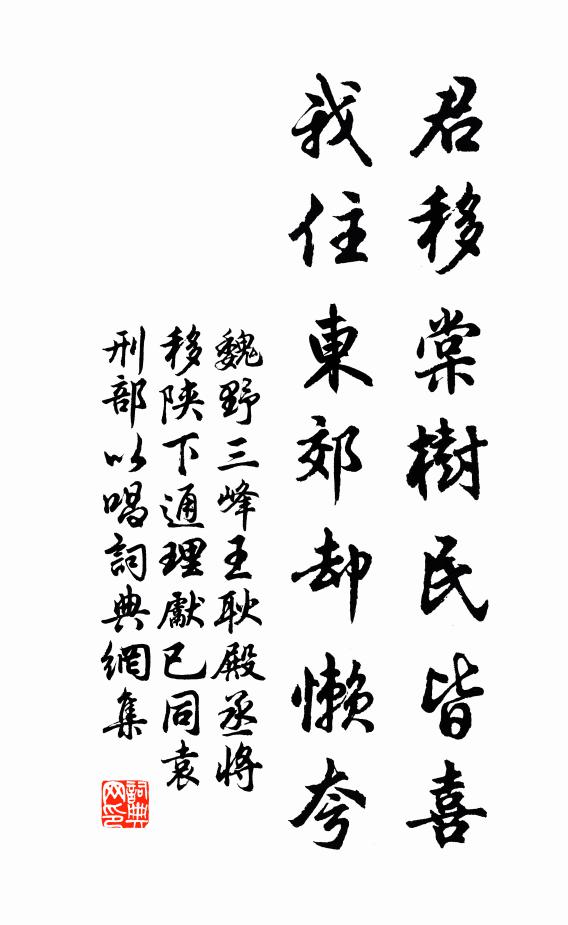 君移棠樹民皆喜
我住東郊却懶夸
魏野三峰王耿殿丞將
移陝下通理獻已同袁
刑部以唱詞典網集
詞典网印